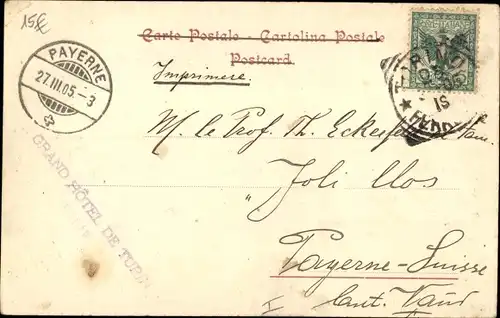 15€
Carte Postale - Cartolina Postale
Postcard
Imprimere.
PAYERNE
27.III.05.-3
TORINO
18
FERR
M. le Prof. Th.
"Joli Clos
Payerne-Suisse
Cant. Vaud
I
GRAND HÔTEL DE TURIN